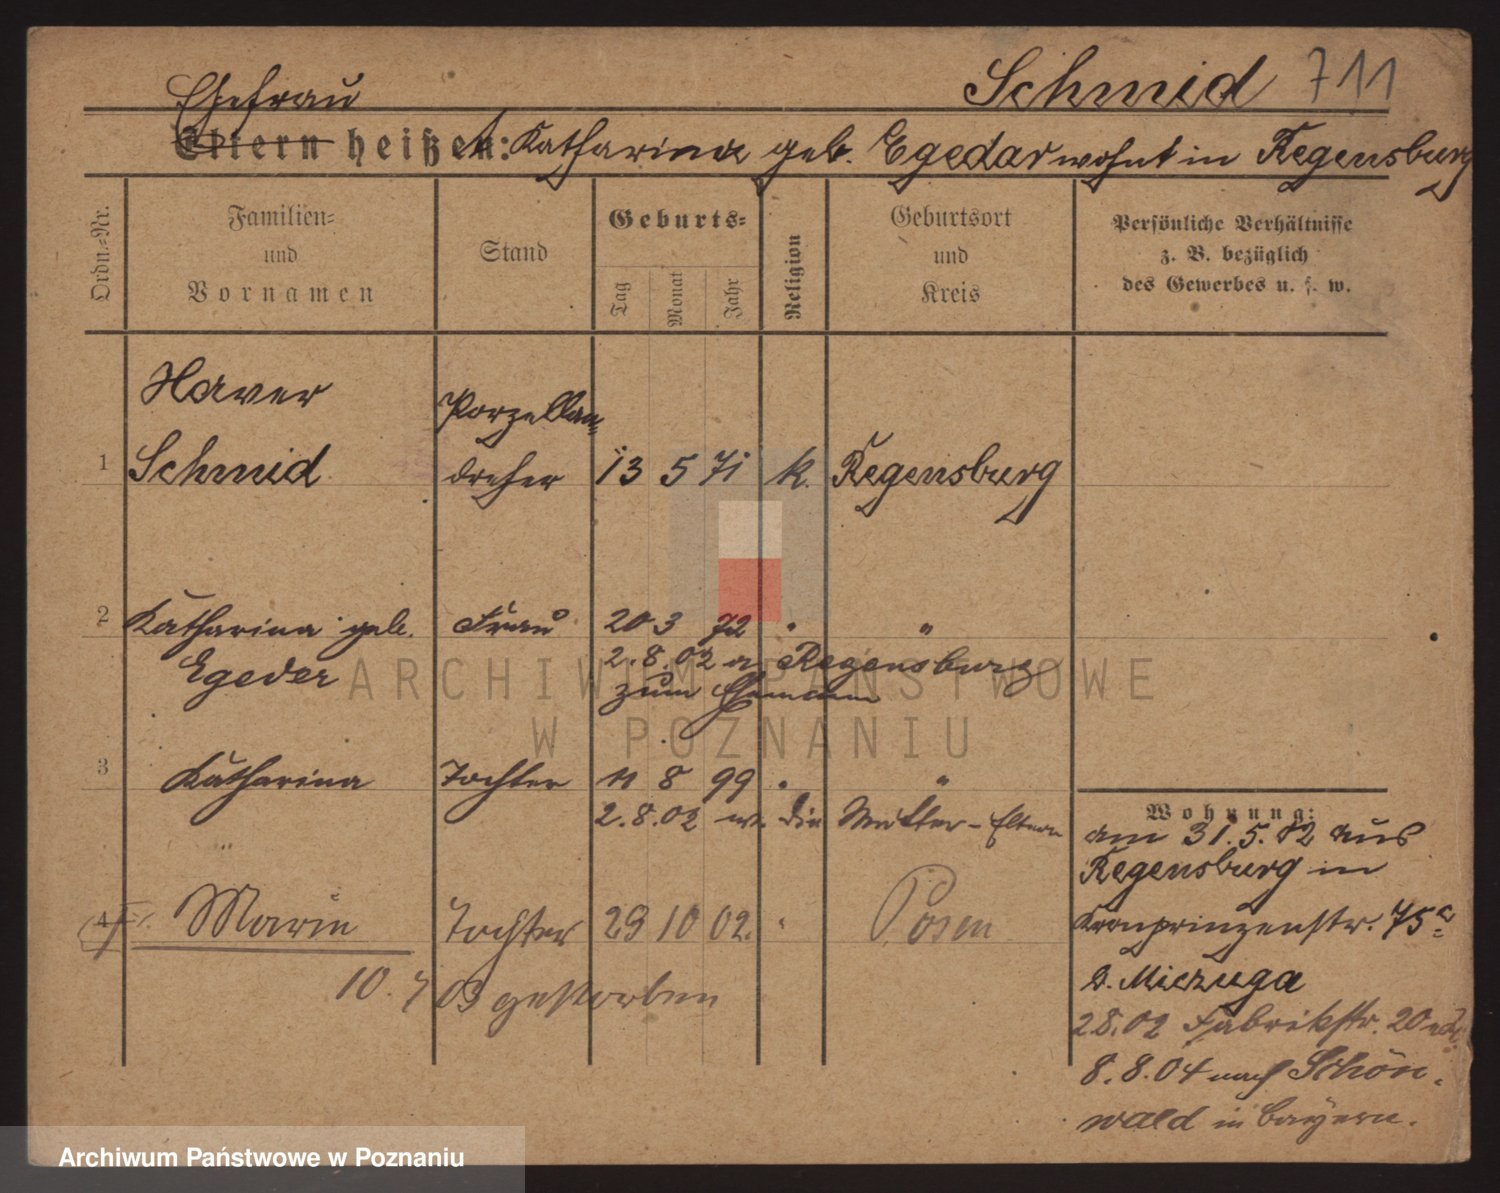 Schmid 711
Ehefrau
Eltern heißen: Katharina geb. Egedar wohnt in Regensburg
Ordn.-Nr.
Familien-
und
Vornamen
Stand
Geburts-
Tag
Monat
Jahr
Religion
Geburtsort
und
Kreis
Persönliche Verhältnisse
z. B. bezüglich
des Gewerbes u. s. w.
Xaver
Porzellan-
1 Schmid dreher 13 5 71 k. Regensburg
2 Katharina geb. Frau 20 3 72 " "
Egeder 2.8.02 a Regensburg
zum Ehemann
3 Katharina Tochter 11 8 99 " "
2.8.02 w. die Mutter - Eltern
4 Marie Tochter 29 10 02. " Posen
10. 7 03 gestorben
Wohnung:
am 31.5.02 aus
Regensburg in
Kronprinzenstr. 75a
b. Miczuga
2.8.02 Fabrikstr. 20
8.8.04 nach Schön-
wald in Bayern.
ARCHIWUM PAŃSTWOWE
W POZNANIU
Archiwum Państwowe w Poznaniu